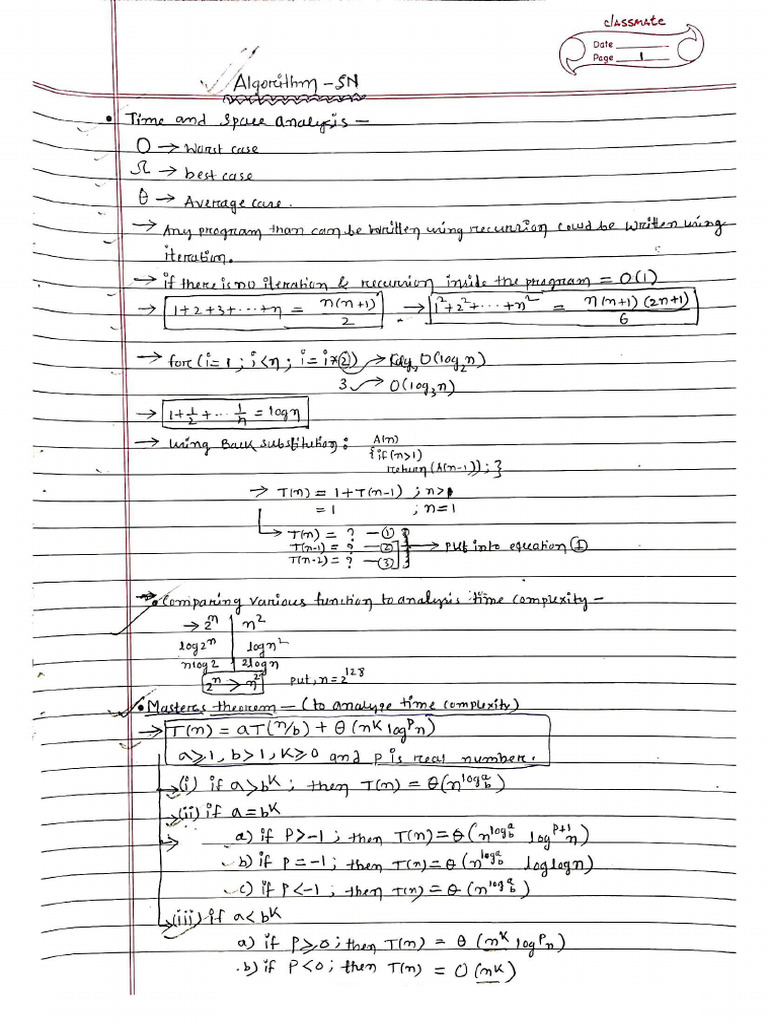 classmate
Date
Page 1
Algorithm - SN
• Time and Space analysis —
O → Worst case
Ω → best case
θ → Average case.
→ Any program than can be written using recursion could be written using
iteration.
→ if there is no iteration & recursion inside the program = O(1)
→ 1+2+3+⋯+n = n(n+1)/2 → 1²+2²+⋯+n² = n(n+1)(2n+1)/6
→ for(i=1; i<n; i=i*2) → O(log₂n)
3 → O(log₃n)
→ 1+1/2+⋯1/n = logn
→ Using Back substitution: A(n)
{if(n>1)
return(A(n-1));}
→ T(n) = 1+T(n-1) ; n>1
= 1 ; n=1
→ T(n) = ? —①
T(n-1) = ? —② → put into equation ①
T(n-2) = ? —③
• Comparing various function to analysis time complexity —
→ 2ⁿ | n²
log2ⁿ | logn²
nlog2 | 2logn
2ⁿ > n² put, n=2¹²⁸
• Masters theorem — (to analyze time complexity)
→ T(n) = aT(n/b) + θ(n^k log^p n)
a≥1, b>1, k≥0 and p is real number.
→ (i) if a>b^k ; then T(n) = θ(n^log_b^a)
→ (ii) if a=b^k
→ a) if P>-1 ; then T(n) = θ(n^log_b^a log^p+1 n)
b) if P=-1; then T(n) = θ(n^log_b^a loglogn)
c) if P<-1 ; then T(n) = θ(n^log_b^a)
→ (iii) if a<b^k
a) if P≥0; then T(n) = θ(n^k log^p n)
b) if P<0; then T(n) = O(n^k)